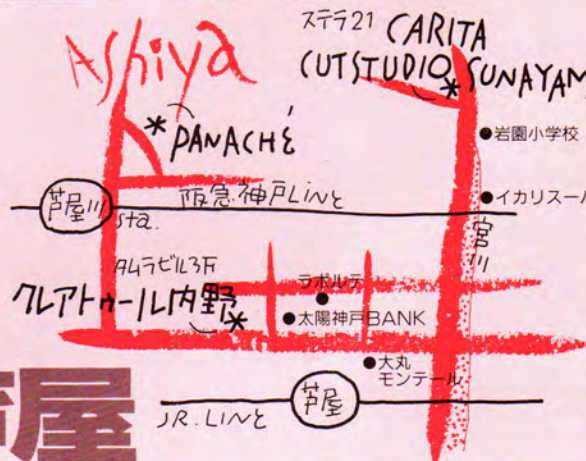 Ashiya
ステラ21 CARITA
CUTSTUDIO SUNAYAM
* PANACHÉ
●岩園小学校
阪急神戸LINE
芦屋川 sta.
●イカリスーパ
宮川
タムラビル3F
クレアトゥール内野
*
ラポルテ
●太陽神戸BANK
●大丸
モンテール
芦屋
J.R. LINE
芦屋